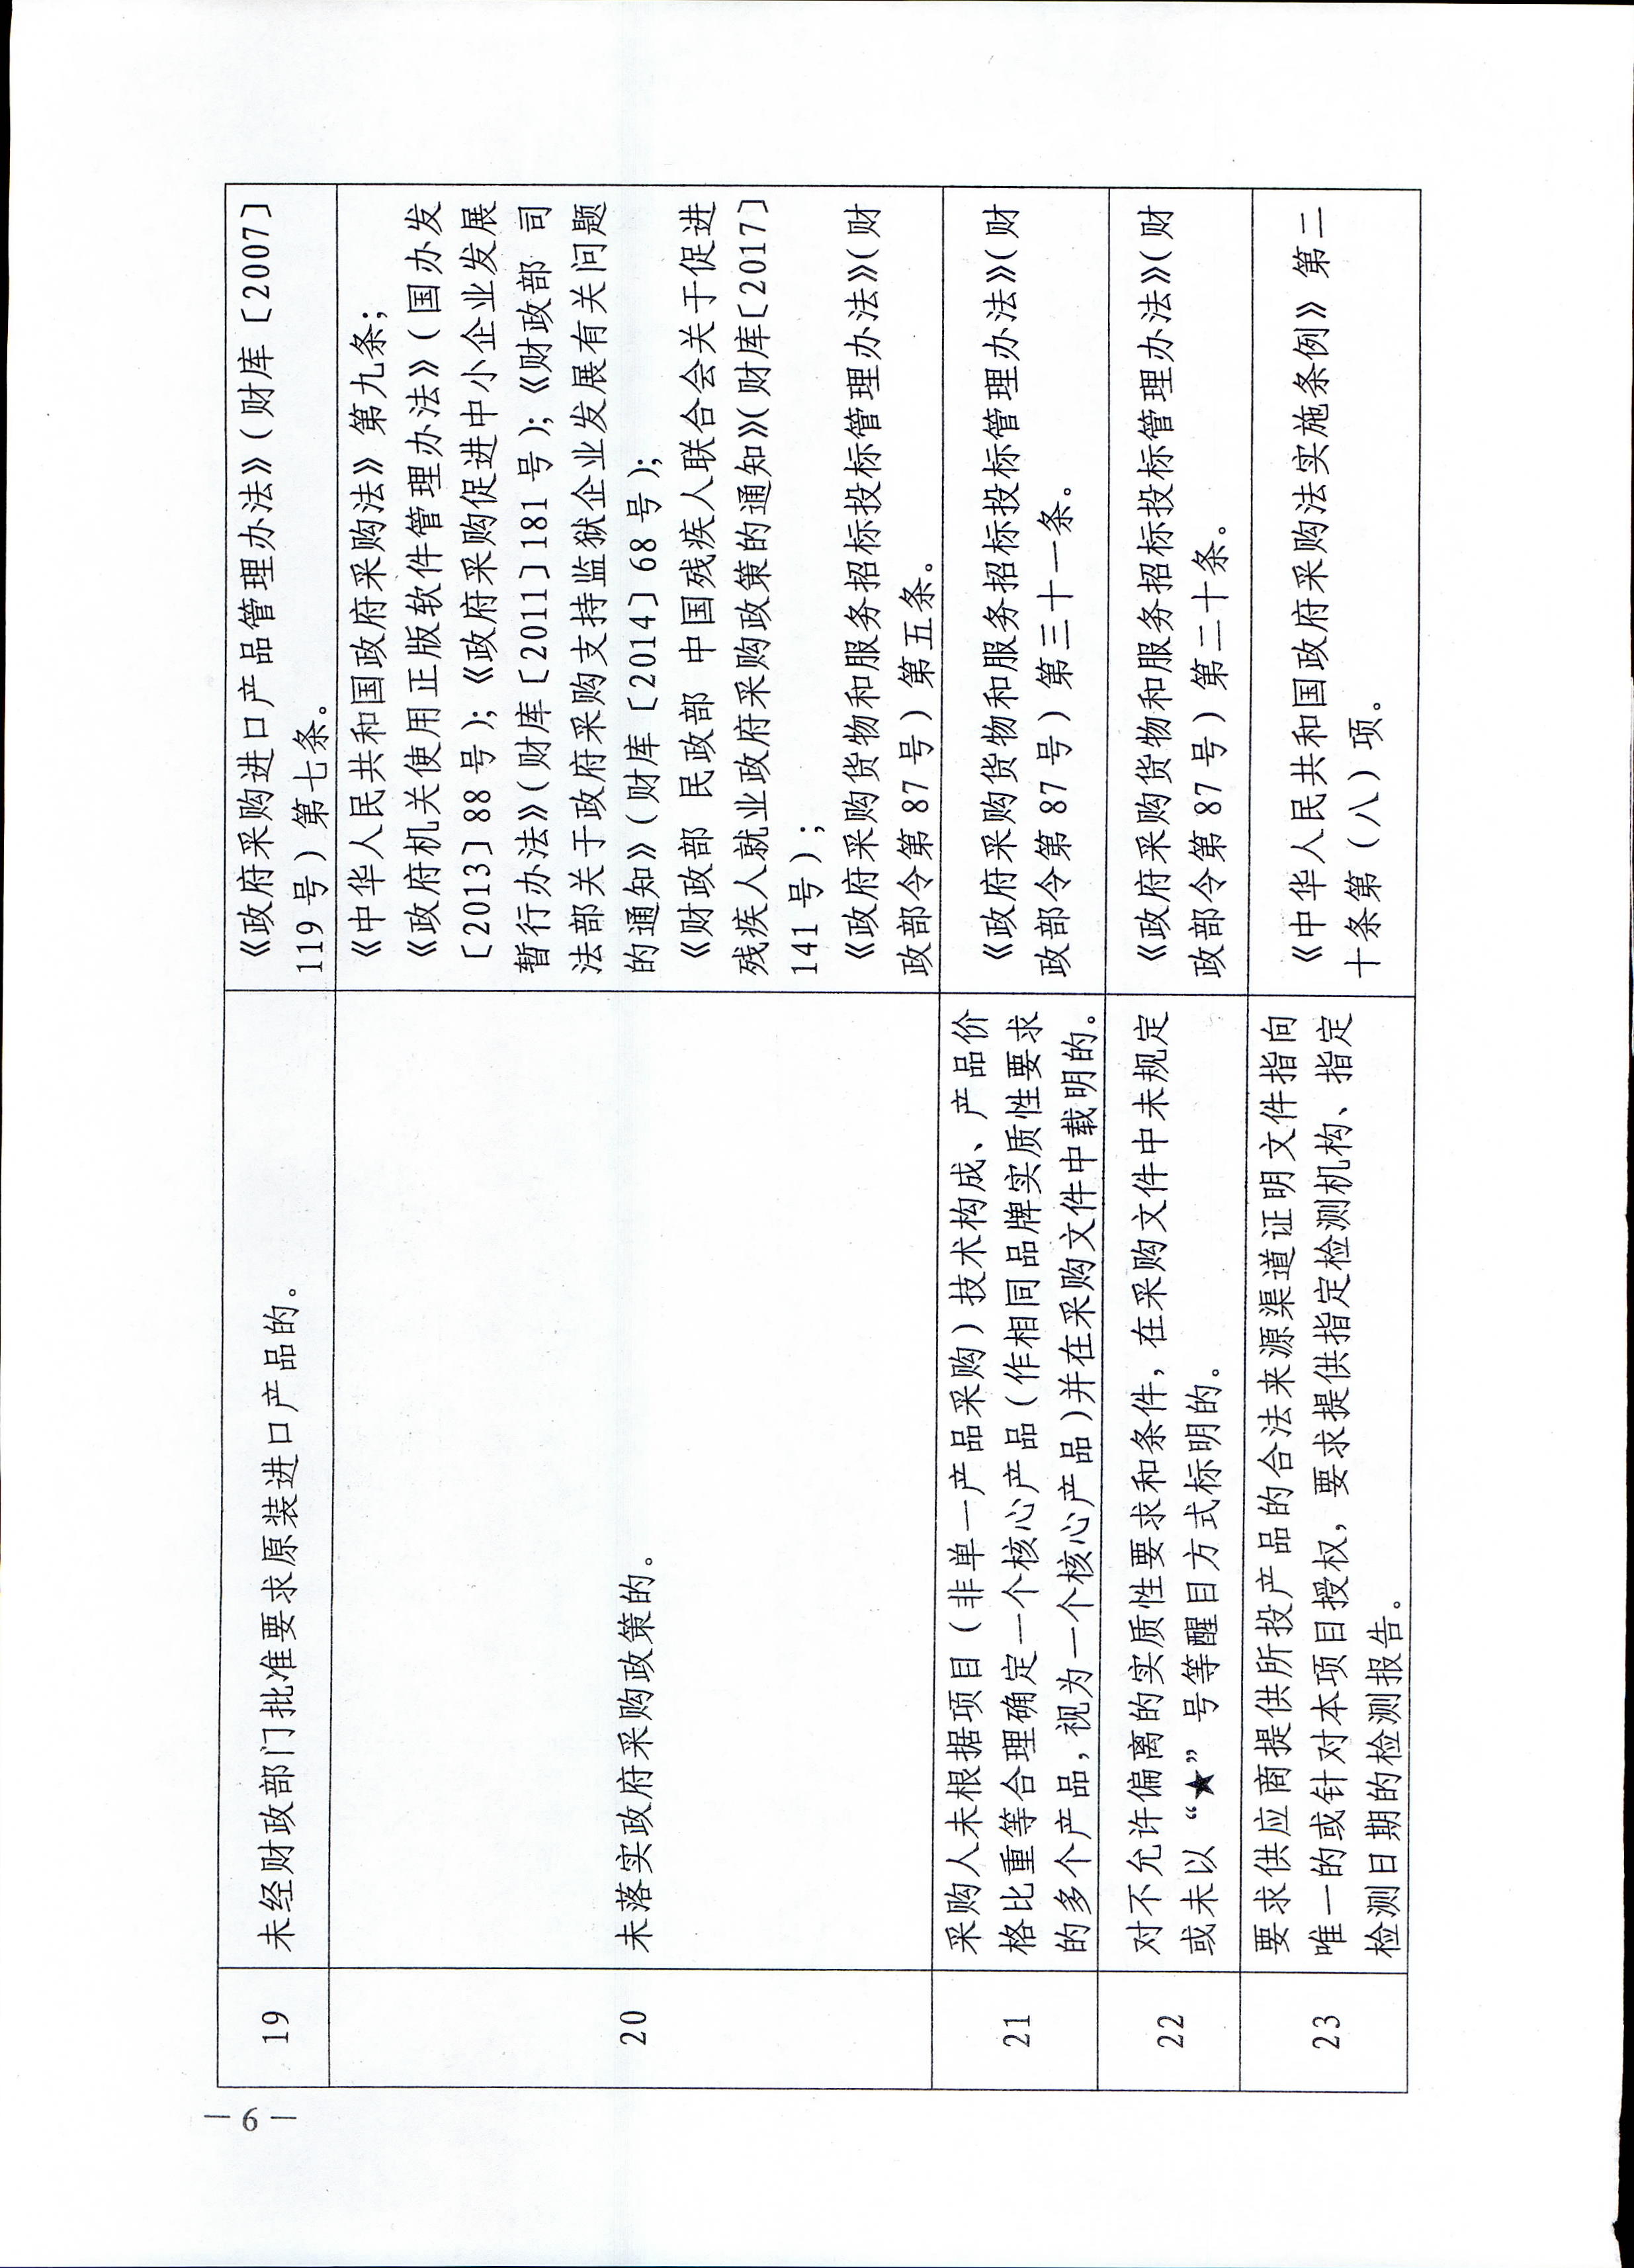 19
未经财政部门批准要求原装进口产品的。
《政府采购进口产品管理办法》（财库〔2007〕
119 号）第七条。
20
未落实政府采购政策的。
《中华人民共和国政府采购法》第九条；
《政府机关使用正版软件管理办法》（国办发
〔2013〕88 号）；《政府采购促进中小企业发展
暂行办法》（财库〔2011〕181 号）；《财政部 司
法部关于政府采购支持监狱企业发展有关问题
的通知》（财库〔2014〕68 号）；
《财政部 民政部 中国残疾人联合会关于促进
残疾人就业政府采购政策的通知》（财库〔2017〕
141 号）；
《政府采购货物和服务招标投标管理办法》（财
政部令第 87 号）第五条。
21
采购人未根据项目（非单一产品采购）技术构成、产品价
格比重等合理确定一个核心产品（作相同品牌实质性要求
的多个产品，视为一个核心产品）并在采购文件中载明的。
《政府采购货物和服务招标投标管理办法》（财
政部令第 87 号）第三十一条。
22
对不允许偏离的实质性要求和条件，在采购文件中未规定
或未以“★”号等醒目方式标明的。
《政府采购货物和服务招标投标管理办法》（财
政部令第 87 号）第二十条。
23
要求供应商提供所投产品的合法来源渠道证明文件指向
唯一的或针对本项目授权，要求提供指定检测机构、指定
检测日期的检测报告。
《中华人民共和国政府采购法实施条例》第二
十条第（八）项。
— 6 —